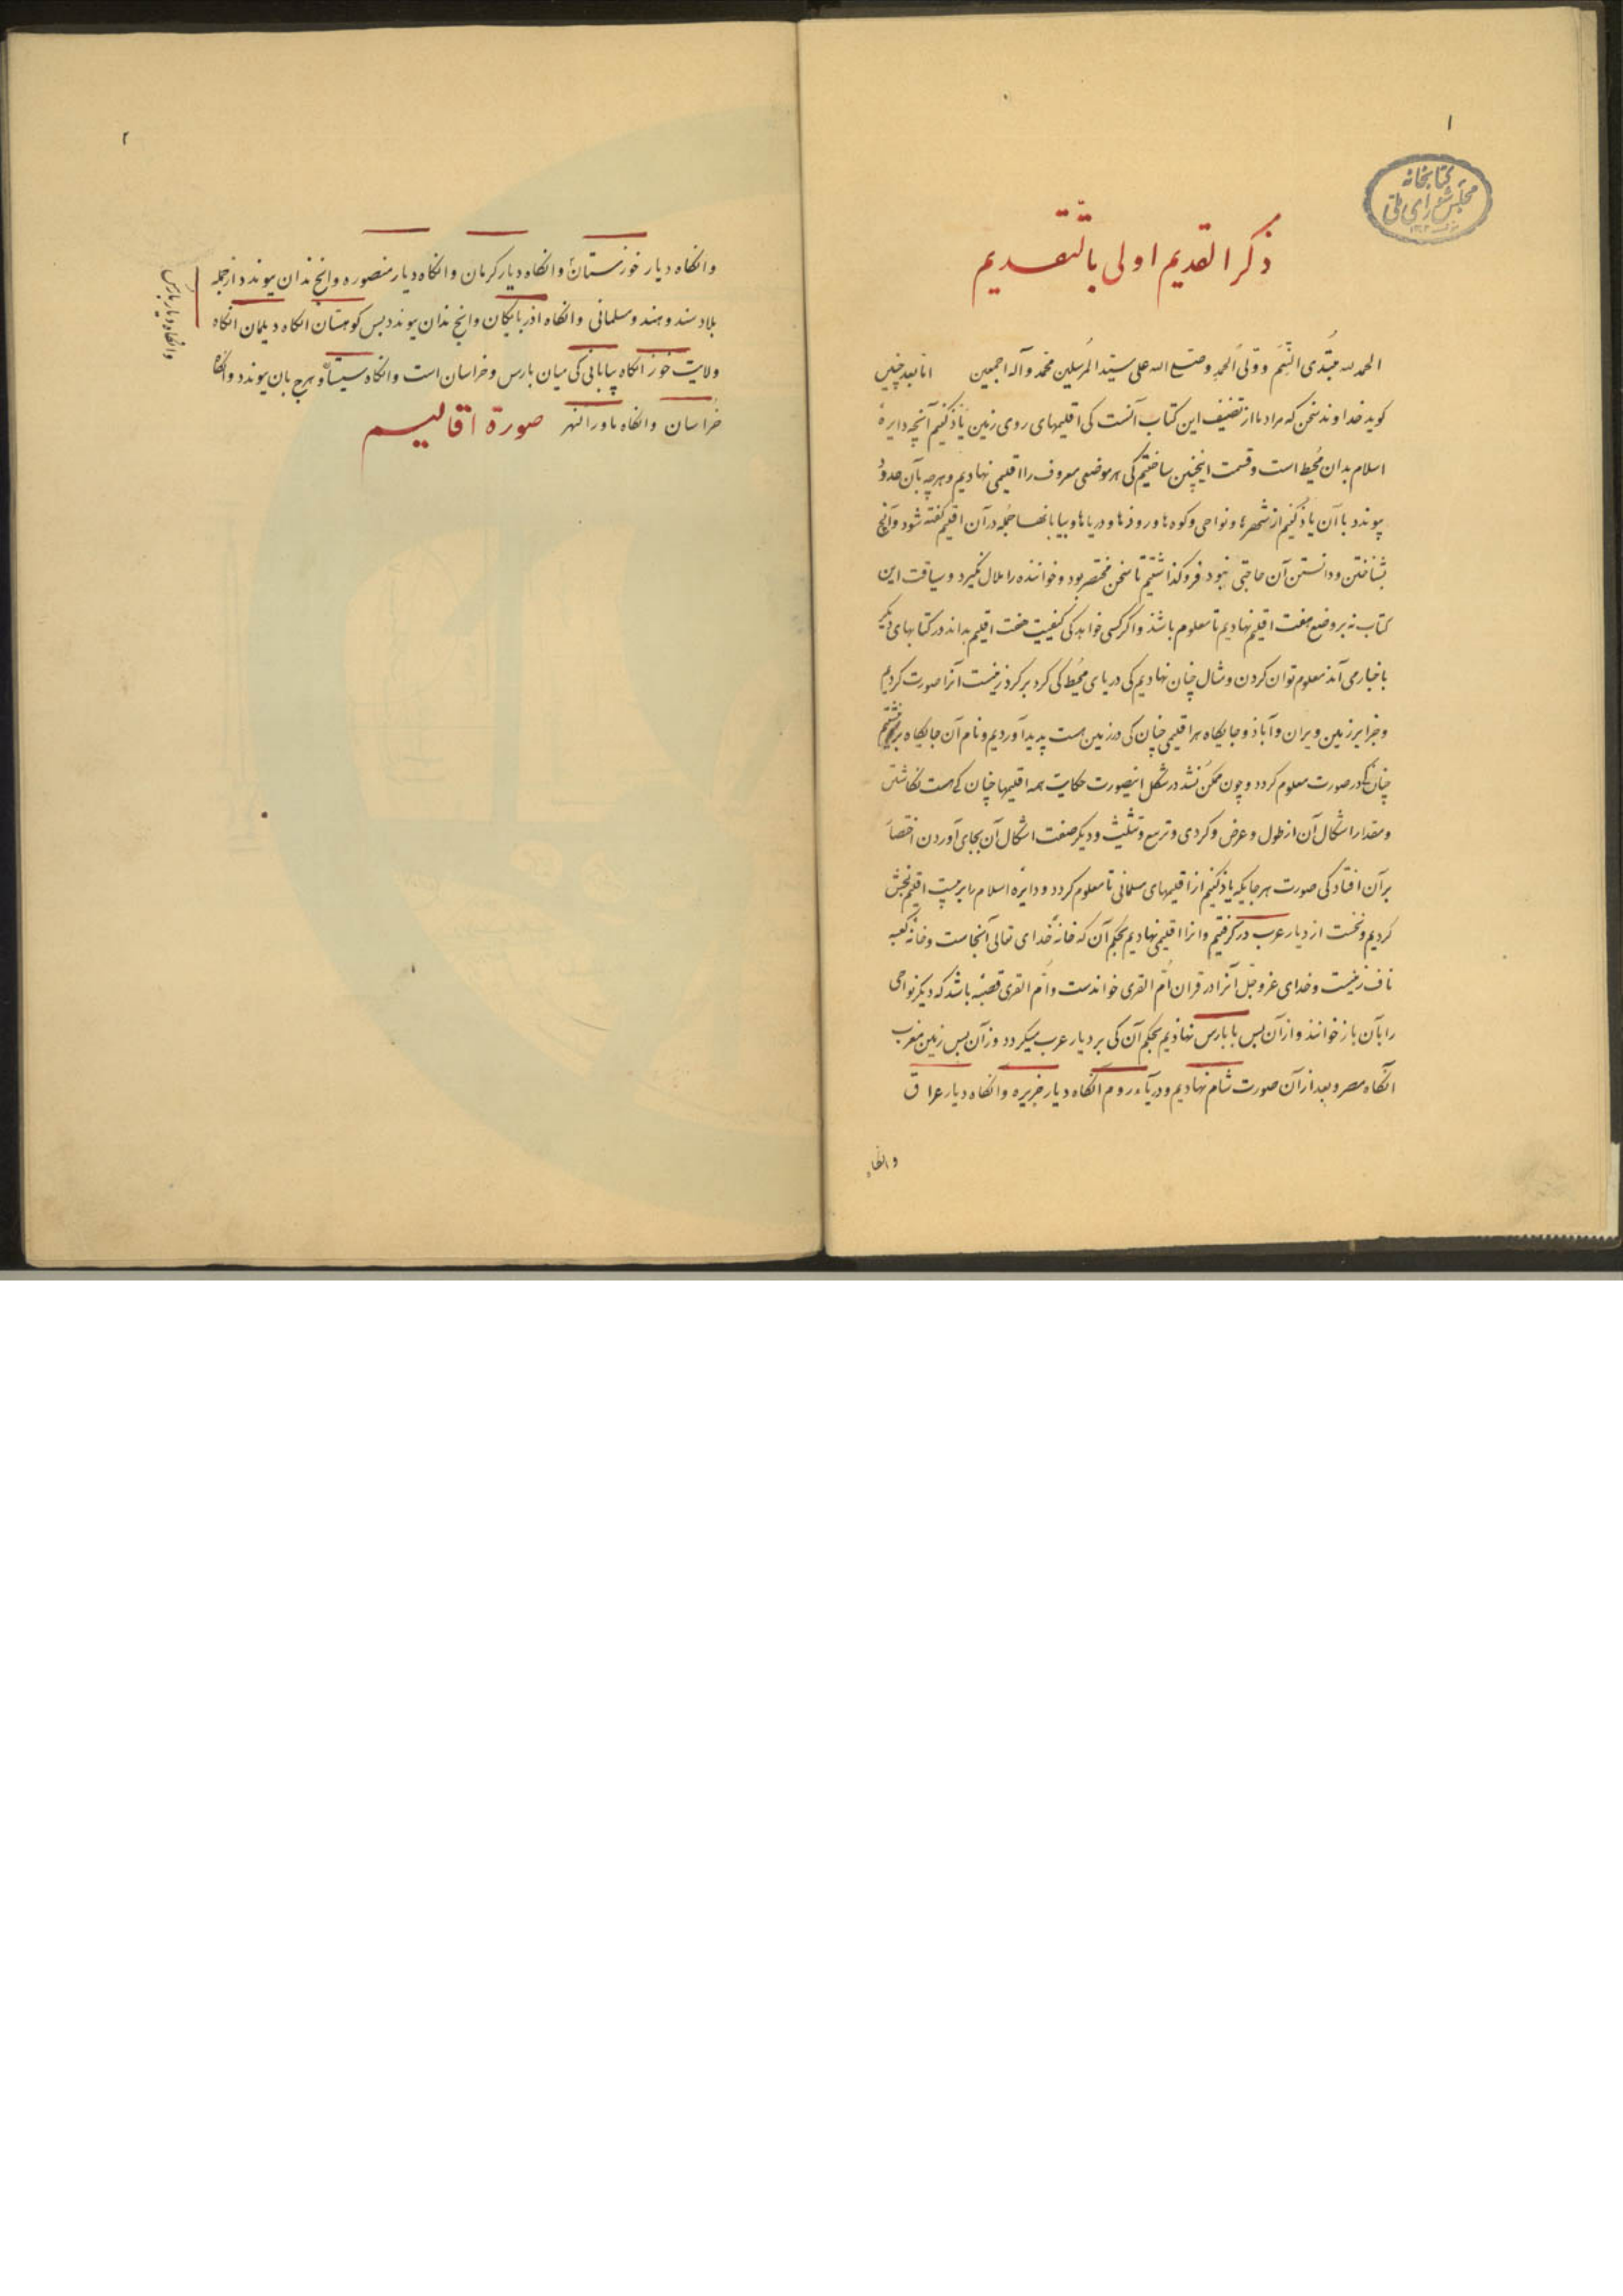 ۱
کتابخانه
مجلس شورای ملی
ذکر القدیم اولی بالتقدیم
الحمد لله مبتدی النعم و ولی الحمد و صلی الله علی سید المرسلین محمد و آله اجمعین اما بعد چنین
کوید خداوند سخن که مراد ما از تصنیف این کتاب آنست کی اقلیمهای روی زمین یاذ کنیم آنچه دایرهٔ
اسلام بدان محیط است و قسمت اینچنین ساختیم کی هر موضعی معروف را اقلیمی نهادیم و هرچه بآن حدود
پیوندد با آن یاذ کنیم از شهرها و نواحی و کوه ها و روذها و دریاها و بیابانها جمله در آن اقلیم کفته شود و آنچ
بشناختن و دانستن آن حاجتی نبود فرو کذاشتیم تا سخن مختصر بود و خواننده را ملال نکیرد و سیاقت این
کتاب نه بر وضع هفت اقلیم نهادیم تا معلوم باشذ و اکر کسی خواهد کی کیفیت هفت اقلیم بداند در کتابهای دیکر
باخبار می آمذ معلوم توان کردن و مثال چنان نهادیم کی دریای محیط کی کرد بر کرد زمینست آنرا صورت کردیم
و جزایر زمین ویران و آباذ و جایکاه هر اقلیمی چنان کی در زمین هست پدید آوردیم و نام آن جایکاه بر نبشتیم
چنان که در صورت معلوم کردد و چون ممکن نشد در شکل اینصورت حکایت همه اقلیمها چنان کی هست نکاشتن
و مقدار اشکال آن از طول و عرض و کردی و تربیع و تثلیث و دیکر صفت اشکال آن بجای آوردن اختصار
برآن افتاد کی صورت هر جایکه یاذ کنیم از اقلیمهای مسلمانی تا معلوم کردد و دایره اسلام را بر بیست اقلیم بخش
کردیم و نخست از دیار عرب در کرفتیم و انرا اقلیمی نهادیم بحکم آن که خانهٔ خدای تعالی آنجاست و خانه کعبه
ناف زمینست و خدای عز و جل آنرا در قران ام القری خواندست و ام القری قصبه باشد که دیکر نواحی
را بآن باز خوانند و از آن پس با پارس نهاذیم بحکم آن کی بر دیار عرب میکردد وزآن پس زمین مغرب
آنکاه مصر و بعد از آن صورت شام نهادیم و دریاء روم آنکاه دیار جزیره وانکاه دیار عراق
وانکاه
۲
وانکاه دیار خوزستان وانکاه دیار کرمان وانکاه دیار منصوره وانچ بذان پیوندد از جمله
بلاد سند و هند و مسلمانی وانکاه اذربایکان وانچ بذان پیوندد پس کوهستان انکاه دیلمان انکاه
ولایت خوز انکاه بیابانی کی میان پارس و خراسان است وانکاه سیستان و هرچ بان پیوندد وانکاه
خراسان وانکاه ماورالنهر صورة اقالیم
وانکاه دیار پارس